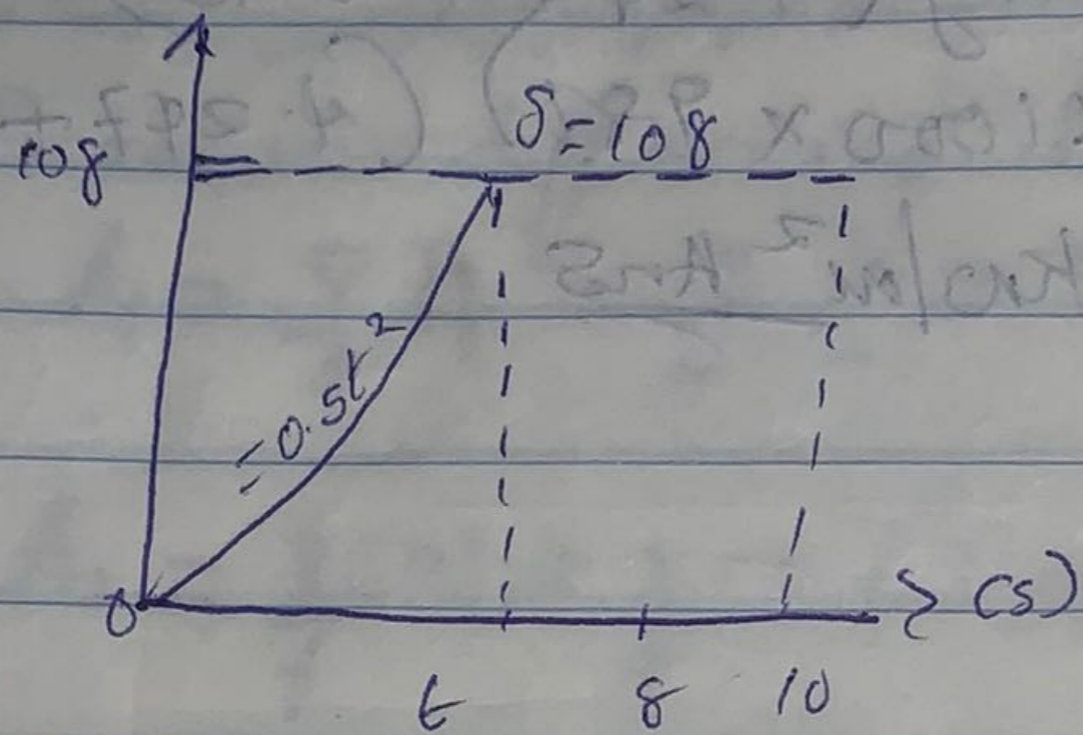 108
δ=108
=0.5t²
0
> (s)
t 8 10